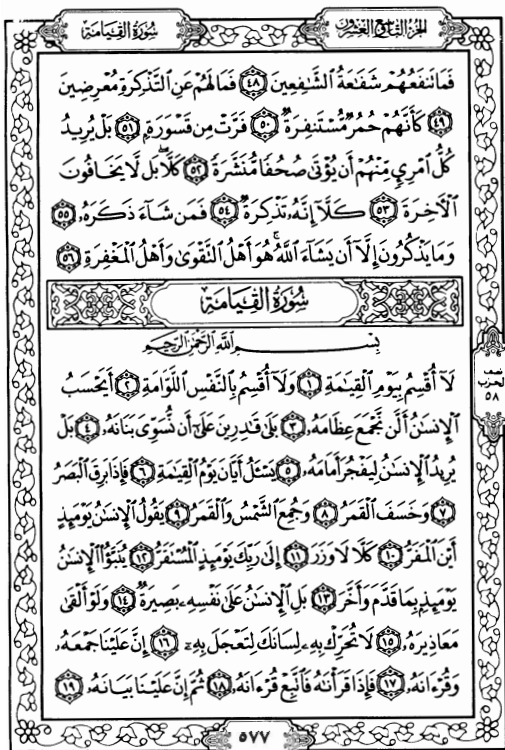 سُورَةُ القِيَامَةِ الجُزءُ التَّاسِعُ وَالعِشْرُونَ
فَمَا تَنفَعُهُمْ شَفَٰعَةُ ٱلشَّٰفِعِينَ ٤٨ فَمَا لَهُمْ عَنِ ٱلتَّذْكِرَةِ مُعْرِضِينَ
٤٩ كَأَنَّهُمْ حُمُرٌ مُّسْتَنفِرَةٌ ٥٠ فَرَّتْ مِن قَسْوَرَةٍۭ ٥١ بَلْ يُرِيدُ
كُلُّ ٱمْرِئٍ مِّنْهُمْ أَن يُؤْتَىٰ صُحُفًا مُّنَشَّرَةً ٥٢ كَلَّا ۖ بَل لَّا يَخَافُونَ
ٱلْأَخِرَةَ ٥٣ كَلَّآ إِنَّهُۥ تَذْكِرَةٌ ٥٤ فَمَن شَآءَ ذَكَرَهُۥ ٥٥
وَمَا يَذْكُرُونَ إِلَّآ أَن يَشَآءَ ٱللَّهُ ۚ هُوَ أَهْلُ ٱلتَّقْوَىٰ وَأَهْلُ ٱلْمَغْفِرَةِ ٥٦
سُورَةُ القِيَامَةِ
بِسْمِ ٱللَّهِ ٱلرَّحْمَٰنِ ٱلرَّحِيمِ
لَآ أُقْسِمُ بِيَوْمِ ٱلْقِيَٰمَةِ ١ وَلَآ أُقْسِمُ بِٱلنَّفْسِ ٱللَّوَّامَةِ ٢ أَيَحْسَبُ
ٱلْإِنسَٰنُ أَلَّن نَّجْمَعَ عِظَامَهُۥ ٣ بَلَىٰ قَٰدِرِينَ عَلَىٰٓ أَن نُّسَوِّىَ بَنَانَهُۥ ٤ بَلْ
يُرِيدُ ٱلْإِنسَٰنُ لِيَفْجُرَ أَمَامَهُۥ ٥ يَسْـَٔلُ أَيَّانَ يَوْمُ ٱلْقِيَٰمَةِ ٦ فَإِذَا بَرِقَ ٱلْبَصَرُ
٧ وَخَسَفَ ٱلْقَمَرُ ٨ وَجُمِعَ ٱلشَّمْسُ وَٱلْقَمَرُ ٩ يَقُولُ ٱلْإِنسَٰنُ يَوْمَئِذٍ
أَيْنَ ٱلْمَفَرُّ ١٠ كَلَّا لَا وَزَرَ ١١ إِلَىٰ رَبِّكَ يَوْمَئِذٍ ٱلْمُسْتَقَرُّ ١٢ يُنَبَّؤُا۟ ٱلْإِنسَٰنُ
يَوْمَئِذٍۭ بِمَا قَدَّمَ وَأَخَّرَ ١٣ بَلِ ٱلْإِنسَٰنُ عَلَىٰ نَفْسِهِۦ بَصِيرَةٌ ١٤ وَلَوْ أَلْقَىٰ
مَعَاذِيرَهُۥ ١٥ لَا تُحَرِّكْ بِهِۦ لِسَانَكَ لِتَعْجَلَ بِهِۦٓ ١٦ إِنَّ عَلَيْنَا جَمْعَهُۥ
وَقُرْءَانَهُۥ ١٧ فَإِذَا قَرَأْنَٰهُ فَٱتَّبِعْ قُرْءَانَهُۥ ١٨ ثُمَّ إِنَّ عَلَيْنَا بَيَانَهُۥ ١٩
نصف
الحزب
٥٨
٥٧٧